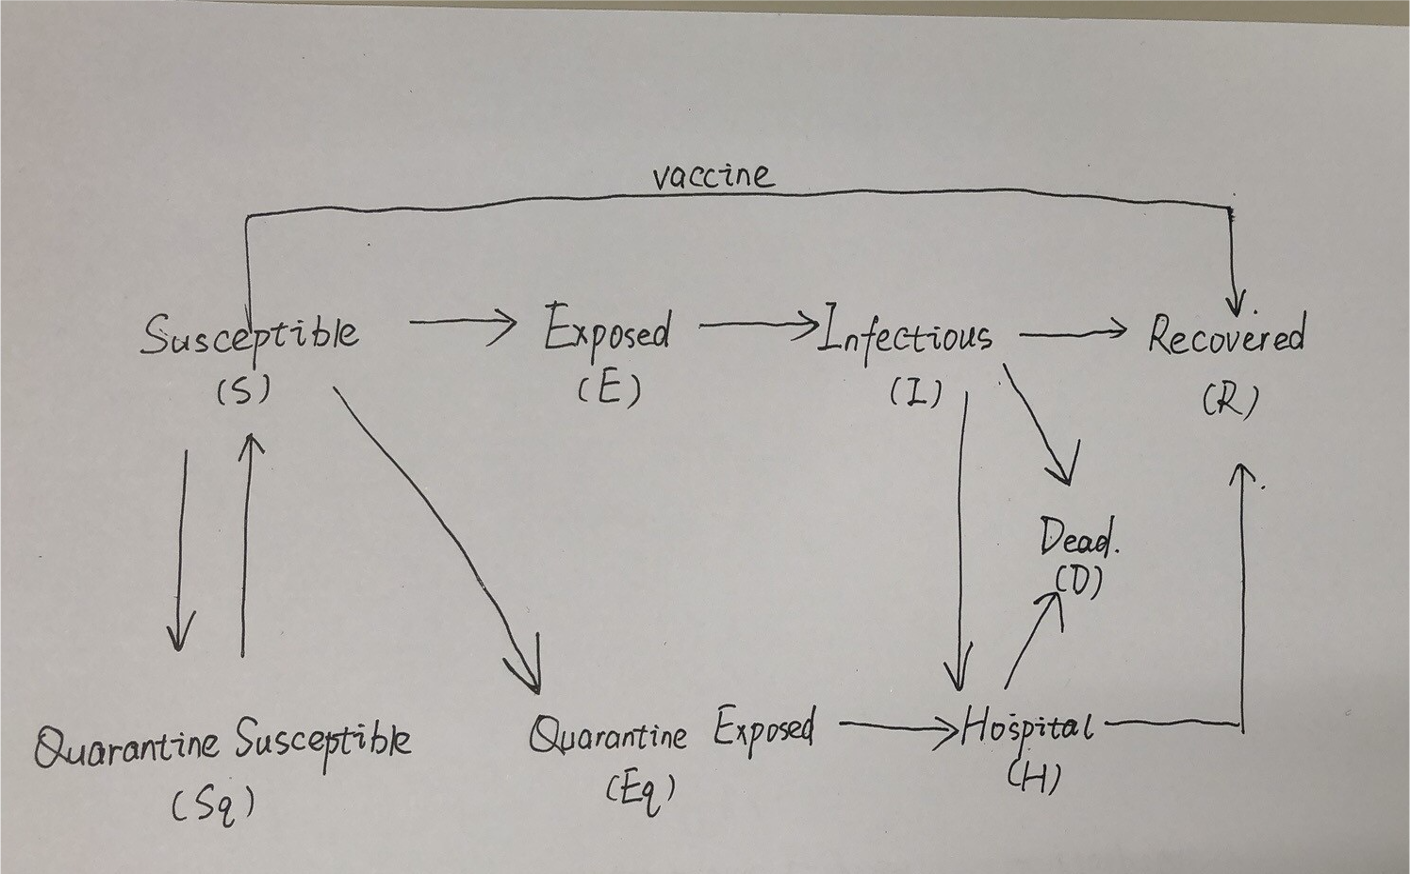 vaccine
Susceptible
(S)
Exposed
(E)
Infectious
(I)
Recovered
(R)
Dead.
(D)
Quarantine Susceptible
(Sq)
Quarantine Exposed
(Eq)
Hospital
(H)